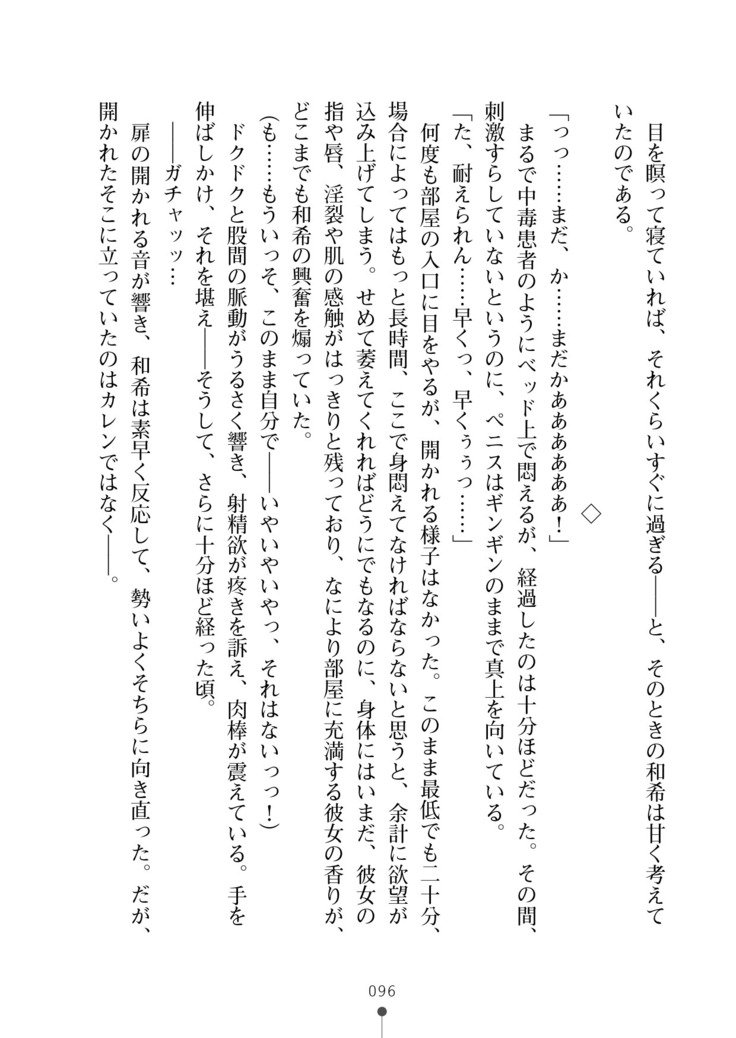 目を瞑って寝ていれば、それくらいすぐに過ぎる――と、そのときの和希は甘く考えて
いたのである。
◇
「っっ……まだ、か……まだかああああああ！」
まるで中毒患者のようにベッド上で悶えるが、経過したのは十分ほどだった。その間、
刺激すらしていないというのに、ペニスはギンギンのままで真上を向いている。
「た、耐えられん……早くっ、早くぅぅっ……」
何度も部屋の入口に目をやるが、開かれる様子はなかった。このまま最低でも二十分、
場合によってはもっと長時間、ここで身悶えてなければならないと思うと、余計に欲望が
込み上げてしまう。せめて萎えてくれればどうにでもなるのに、身体にはいまだ、彼女の
指や唇、淫裂や肌の感触がはっきりと残っており、なにより部屋に充満する彼女の香りが、
どこまでも和希の興奮を煽っていた。
（も……もういっそ、このまま自分で――いやいやいやっ、それはないっっ！）
ドクドクと股間の脈動がうるさく響き、射精欲が疼きを訴え、肉棒が震えている。手を
伸ばしかけ、それを堪え――そうして、さらに十分ほど経った頃。
――ガチャッッ…
扉の開かれる音が響き、和希は素早く反応して、勢いよくそちらに向き直った。だが、
開かれたそこに立っていたのはカレンではなく――。
096